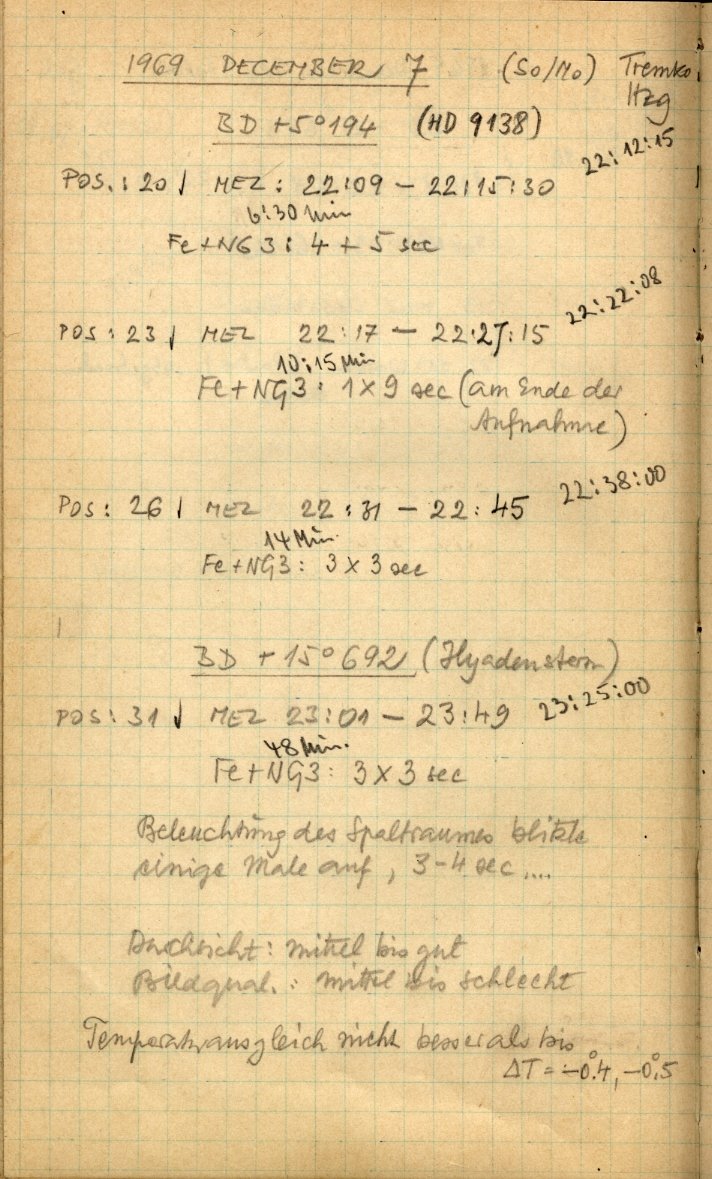 1969 DECEMBER 7 (So/Mo) Tremko
Hzg
BD +5°194 (HD 9138)
22:12:15
POS.: 20 ↓ MEZ: 22:09 – 22:15:30
6:30 Min
Fe+NG3: 4 + 5 sec
22:22:08
POS: 23 ↓ MEZ 22:17 – 22:27:15
10:15 Min
Fe+NG3: 1 x 9 sec (am Ende der
Aufnahme)
22:38:00
POS: 26 ↓ MEZ 22:31 – 22:45
14 Min.
Fe+NG3: 3 x 3 sec
BD +15°692 (Hyadenstern)
23:25:00
POS: 31 ↓ MEZ 23:01 – 23:49
48 Min.
Fe+NG3: 3 x 3 sec
Beleuchtung des Spaltraumes blitzte
einige Male auf, 3-4 sec ....
Durchsicht: mittel bis gut
Bildqual.: mittel bis schlecht
Temperaturausgleich nicht besser als bis
ΔT = –0°.4, –0°.5